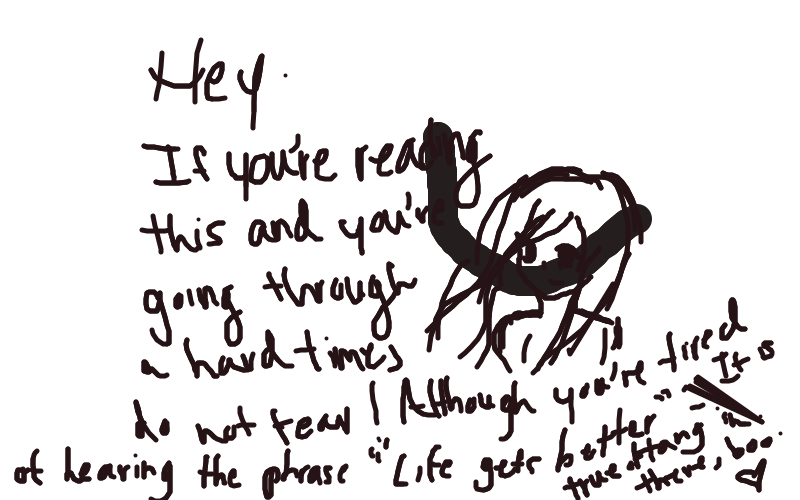 Hey.
If you're reading
this and you're
going through
a hard times
do not fear! Although you're tired
of hearing the phrase "Life gets better" It is
true. Hang in
there, boo.